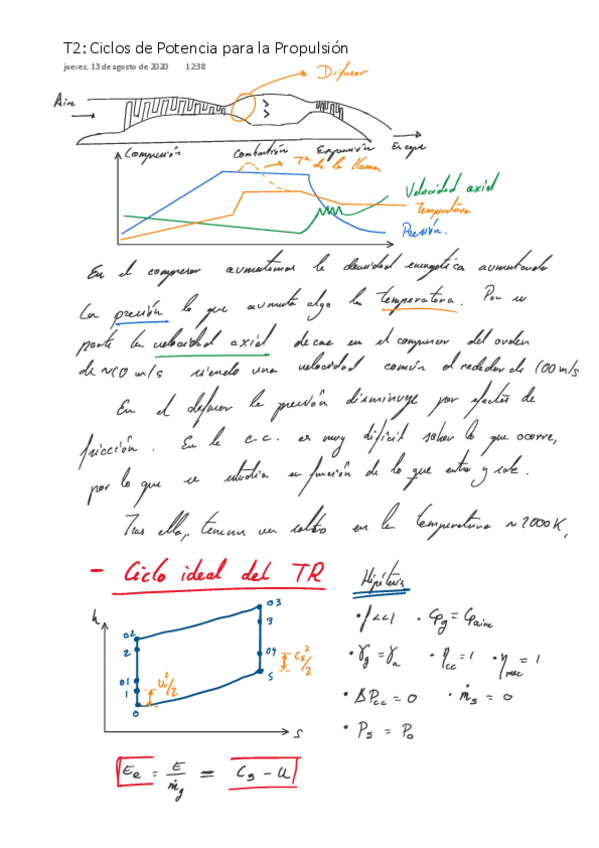 T2: Ciclos de Potencia para la Propulsión
jueves, 13 de agosto de 2020 12:38
Difusor
Aire
Compresión Combustión Expansión Escape
Tª de la llama
Velocidad axial
Temperatura
Presión.
En el compresor aumentamos la densidad energética aumentando
la presión lo que aumenta algo la temperatura. Por su
parte la velocidad axial decae en el compresor del orden
de ~10 m/s siendo una velocidad común alrededor de 100 m/s
En el difusor la presión disminuye por efectos de
fricción. En la c.c. es muy difícil saber lo que ocurre,
por lo que se estudia en función de lo que entra y sale.
Tras ella, tenemos un salto en la temperatura ~2000K,
- Ciclo ideal del TR
Hipótesis
h
03
02
3
2
04
C₅²/2
5
01
1
u²/2
0
s
• f<<1 • Cpg = Cpaire
• γg = γa • ηcc = 1 • ηmec = 1
• ΔPcc = 0 • ṁs = 0
• P5 = P0
Ee = E/ṁg = C5 - u